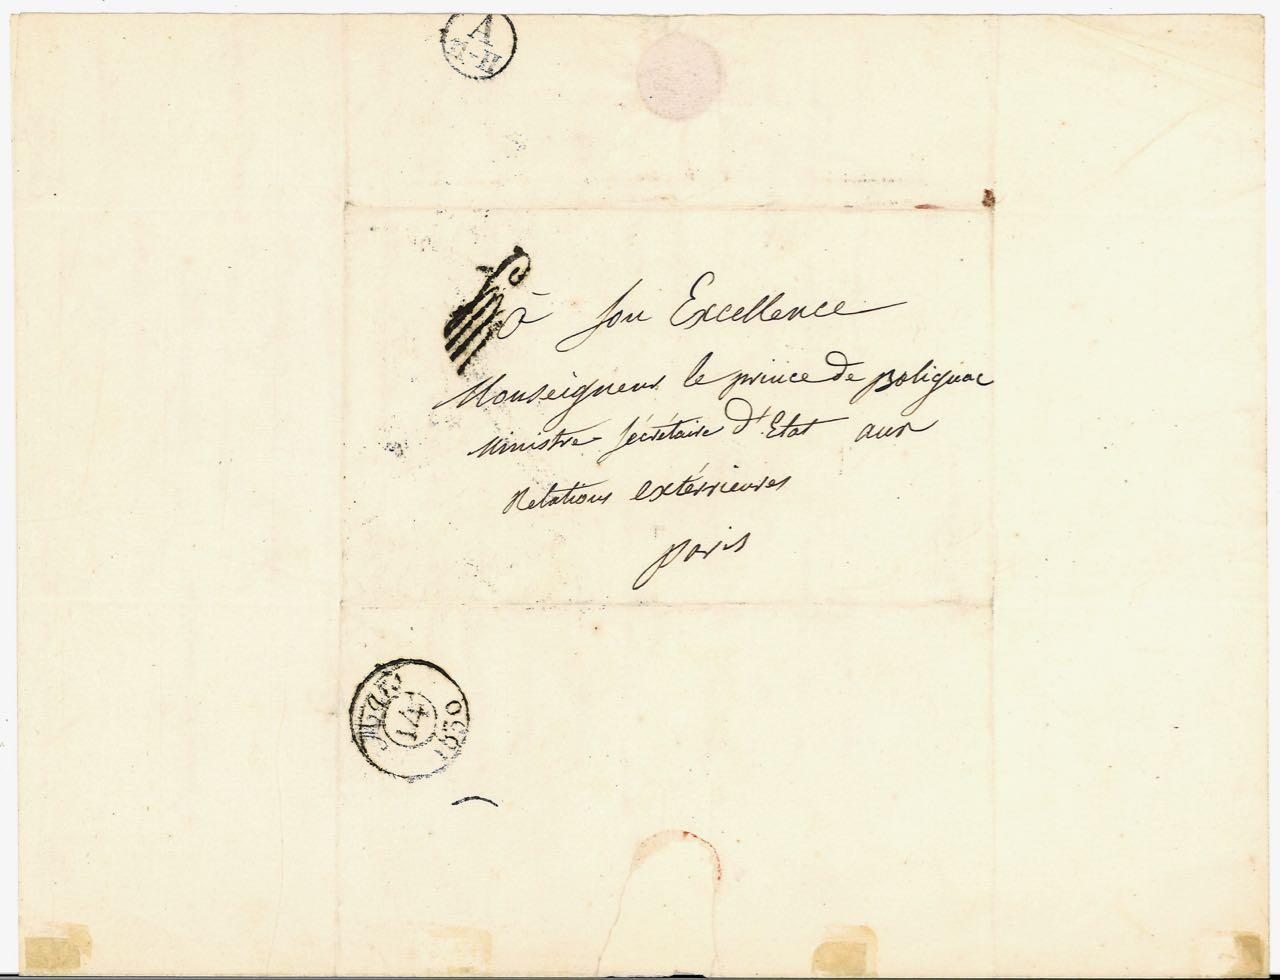 A
à Son Excellence
Monseigneur le prince de polignac
Ministre Sécrétaire d'Etat aux
Relations extérrieures
paris
Mars
14
1830